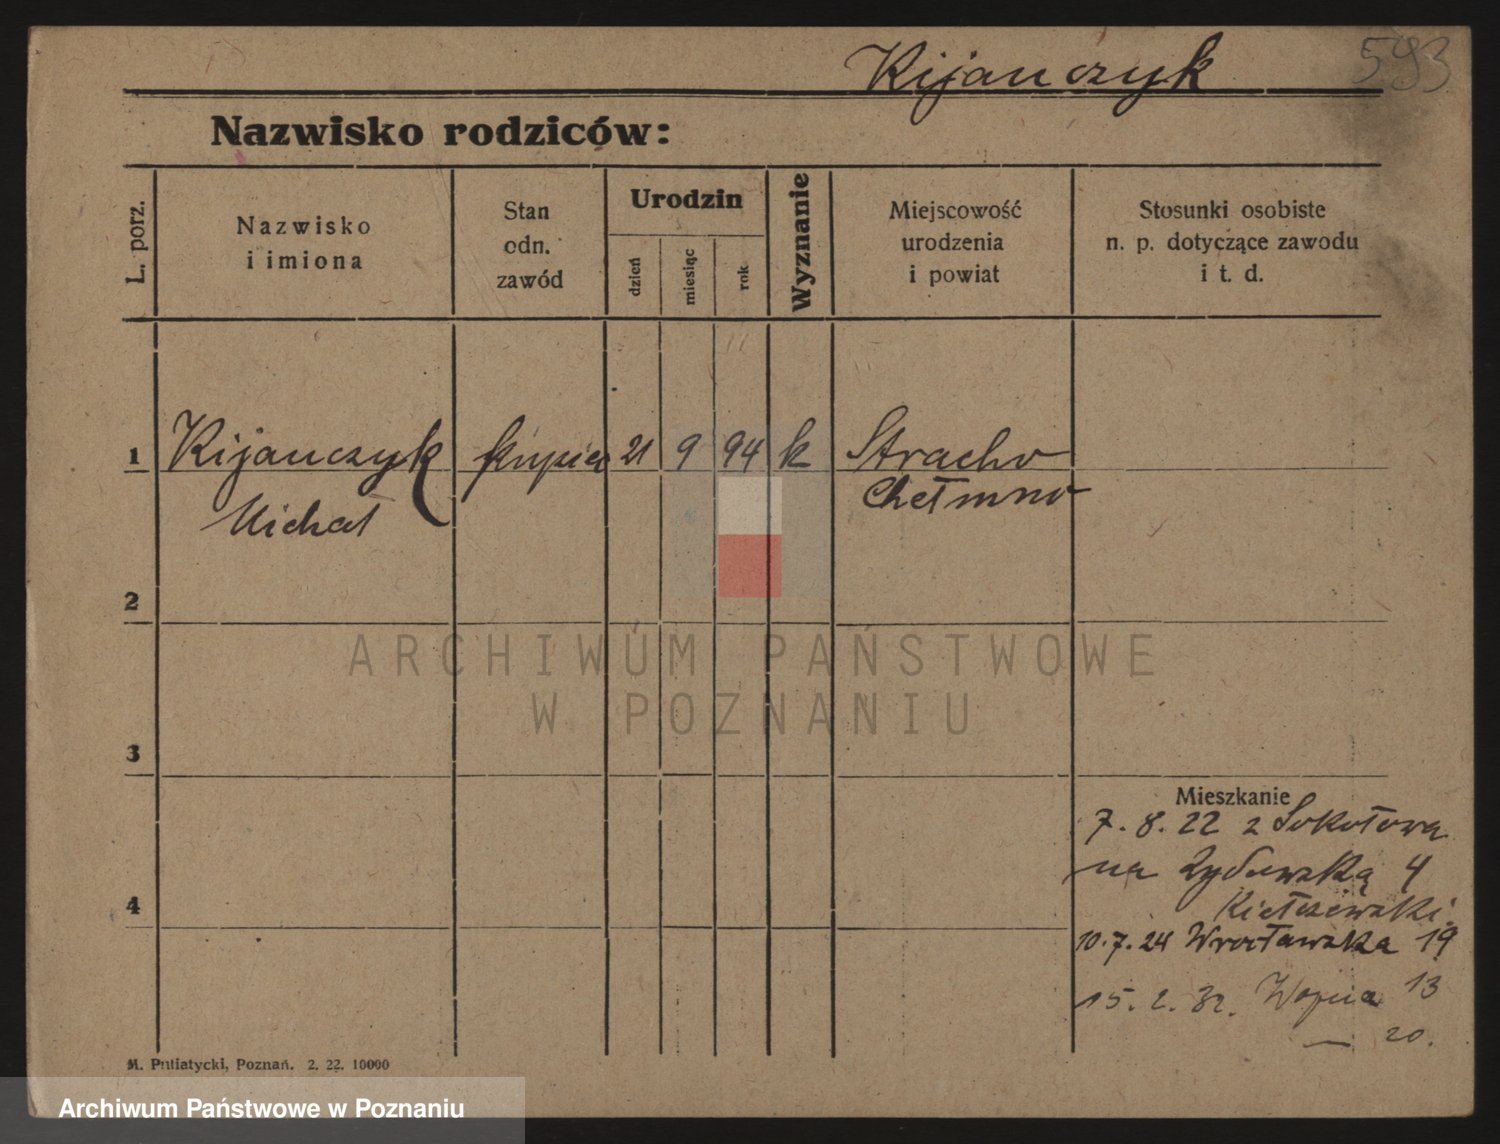 Kijanczyk 593
Nazwisko rodziców:
L. porz.
Nazwisko
i imiona
Stan
odn.
zawód
Urodzin
dzień
miesiąc
rok
Wyznanie
Miejscowość
urodzenia
i powiat
Stosunki osobiste
n. p. dotyczące zawodu
i t. d.
1 Kijanczyk kupiec 21 9 94 k Stracho
Michał Chełmno
2
ARCHIWUM PAŃSTWOWE
W POZNANIU
3
Mieszkanie
7. 8. 22 z Sokołowa
na Żydowską 4
4
Kiełczewski
10. 7. 24 Wrocławska 19
15. 2. 32. Woźna 13
— 20.
M. Putiatycki, Poznań. 2. 22. 10000
Archiwum Państwowe w Poznaniu